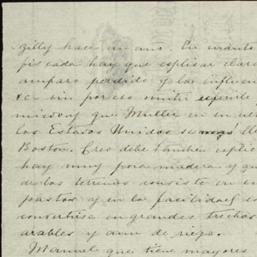 Gilly hace un ano. En cuanto
fis cada hay que esplicar clara
amparo perdido y las influen
&c sin por eso omitir
missory que Muller en su ul
los Estados Unidos se
Boston. Creo debe tambien esplic
hay muy poca madera y qu
de los terrenos consiste en
pastos y en la facilidad
convertirse en grandes trechos
arables y aun de riego.
Manuel que tiene mayores